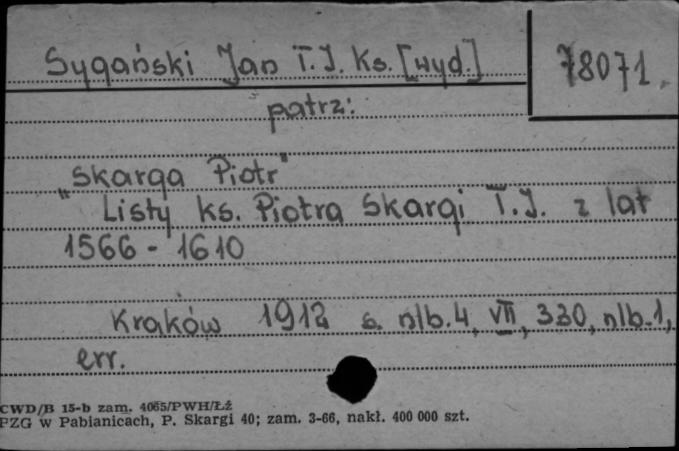 Sygański Jan T.J. Ks. [wyd.]
78071.
patrz:
"Skarga Piotr"
Listy ks. Piotra Skargi T.J. z lat
1566 - 1610
Kraków 1912 s. nlb. 4, VII, 330, nlb. 1,
err.
CWD/B 15-b zam. 4065/PWH/Łź
PZG w Pabianicach, P. Skargi 40; zam. 3-66, nakł. 400 000 szt.